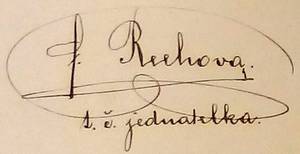 J. Rechova,
t. č. jednatelka.